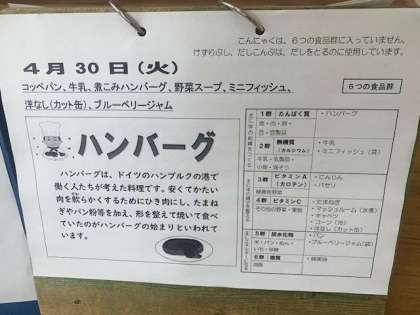 こんにゃくは、６つの食品群に入っていません。
けずりぶし、だしこんぶは、だしをとるのに使用しています。
４月３０日（火）
コッペパン、牛乳、煮こみハンバーグ、野菜スープ、ミニフィッシュ、
洋なし（カット缶）、ブルーベリージャム
６つの食品群
ハンバーグ
ハンバーグは、ドイツのハンブルクの港で
働く人たちが考えた料理です。安くてかたい
肉を軟らかくするためにひき肉にし、たまね
ぎやパン粉等を加え、形を整えて焼いて食べ
ていたのがハンバーグの始まりといわれて
います。
１群 たんぱく質
・ハンバーグ
２群 無機質
（カルシウム）
牛乳・乳製品・
・牛乳
・ミニフィッシュ（袋）
３群 ビタミンA
（カロテン）
緑黄色野菜
・にんじん
・パセリ
４群 ビタミンC
その他の野菜・果物
・たまねぎ
・マッシュルーム（水煮）
・キャベツ
・コーン（冷）
・洋なし（カット缶）
５群 炭水化物
米・パン・めん・
いも・砂糖
・パン
・ブルーベリージャム（袋）
６群 脂質
油脂